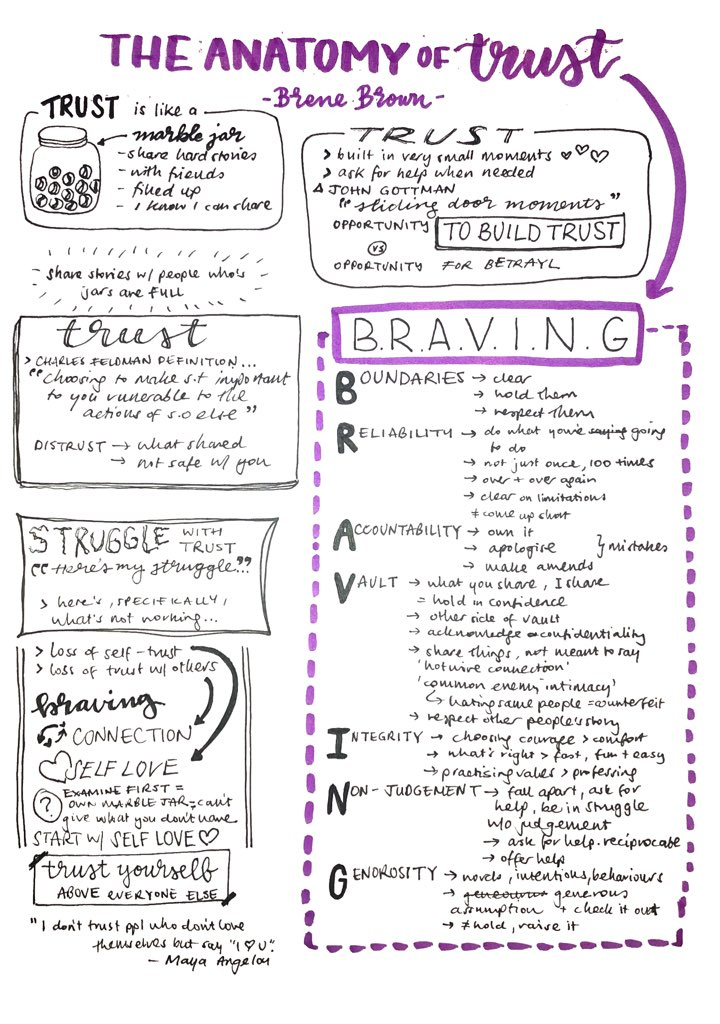 THE ANATOMY OF trust
-Brene Brown-
TRUST is like a
marble jar
- share hard stories
- with friends
- filled up
- I know I can share
share stories w/ people who's
jars are FULL
TRUST
> built in very small moments
> ask for help when needed
JOHN GOTTMAN
"sliding door moments"
OPPORTUNITY TO BUILD TRUST
VS
OPPORTUNITY FOR BETRAYL
trust
> CHARLES FELDMAN DEFINITION...
"choosing to make s.t important
to you vunerable to the
actions of s.o else"
DISTRUST → what shared
→ not safe w/ you
STRUGGLE WITH
TRUST
"Here's my struggle..."
> here's, SPECIFICALLY,
what's not working...
> loss of self-trust
> loss of trust w/ others
braving
CONNECTION
SELF LOVE
? EXAMINE FIRST =
OWN MARBLE JAR = can't
give what you don't have
START W/ SELF LOVE
trust yourself
ABOVE EVERYONE ELSE
"I don't trust ppl who don't love
themselves but say "I ♡ U".
- Maya Angelou
B.R.A.V.I.N.G
BOUNDARIES → clear
→ hold them
→ respect them
RELIABILITY → do what you're saying going
to do
→ not just once, 100 times
→ over + over again
→ clear on limitations
≠ come up short
ACCOUNTABILITY → own it
→ apologise } mistakes
→ make amends
VAULT → what you share, I share
= hold in confidence
→ other side of vault
→ acknowledge confidentiality
→ share things, not meant to say
'hotwire connection'
'common enemy intimacy'
↳ hating same people = counterfeit
→ respect other people's story
INTEGRITY → choosing courage > comfort
→ what's right > fast, fun + easy
→ practising values > professing
NON-JUDGEMENT → fall apart, ask for
help, be in struggle
w/o judgement
→ ask for help - reciprocate
→ offer help
GENOROSITY → words, intentions, behaviours
→ generous
assumption + check it out
→ ≠ hold, raise it